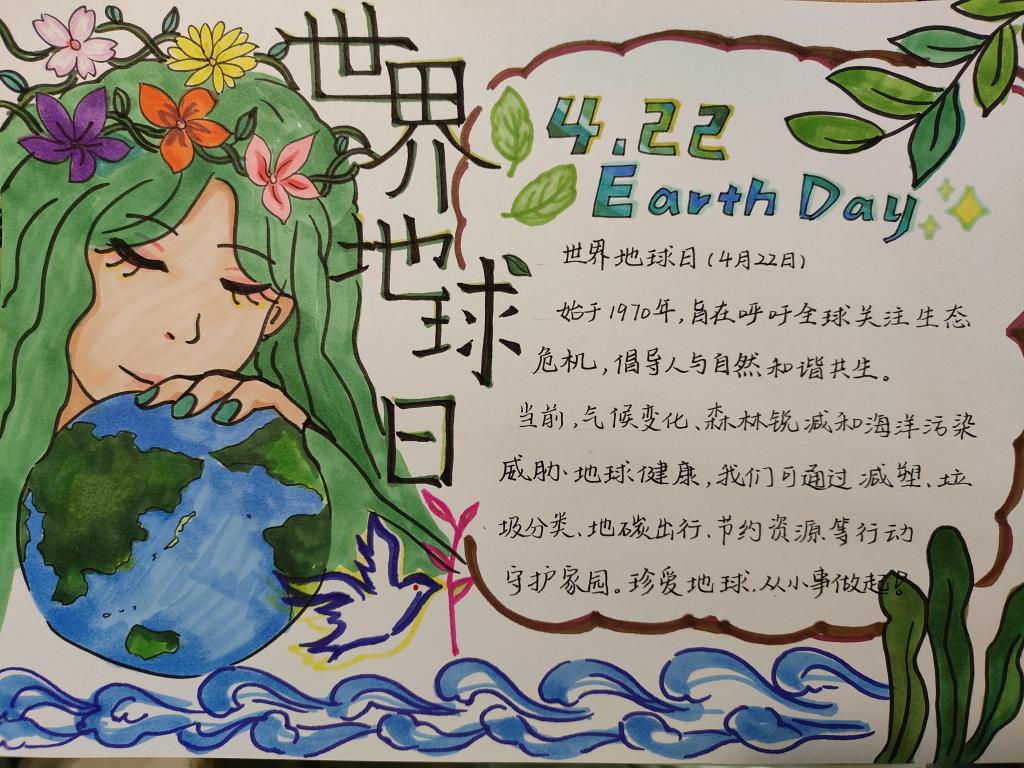 世界地球日
4.22
Earth Day
世界地球日(4月22日)
始于1970年,旨在呼吁全球关注生态
危机,倡导人与自然和谐共生。
当前,气候变化、森林锐减和海洋污染
威胁地球健康,我们可通过减塑、垃
圾分类、地碳出行、节约资源等行动
守护家园。珍爱地球,从小事做起!